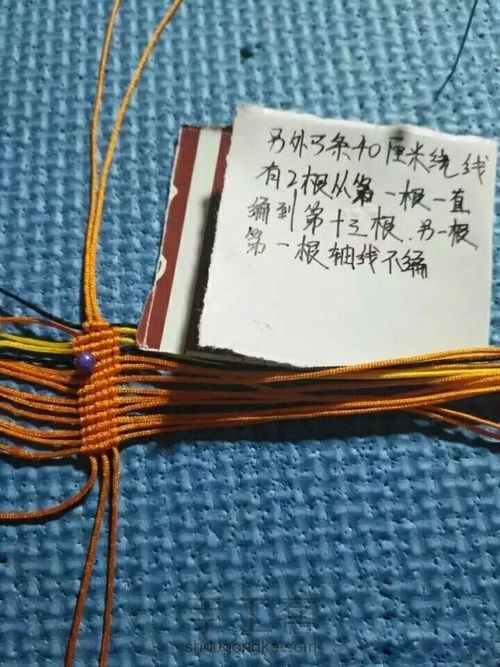 另外3条40厘米绕线
有2根从第一根一直
编到第十三根.另一根
第一根轴线不编
手工客
shougongke.com